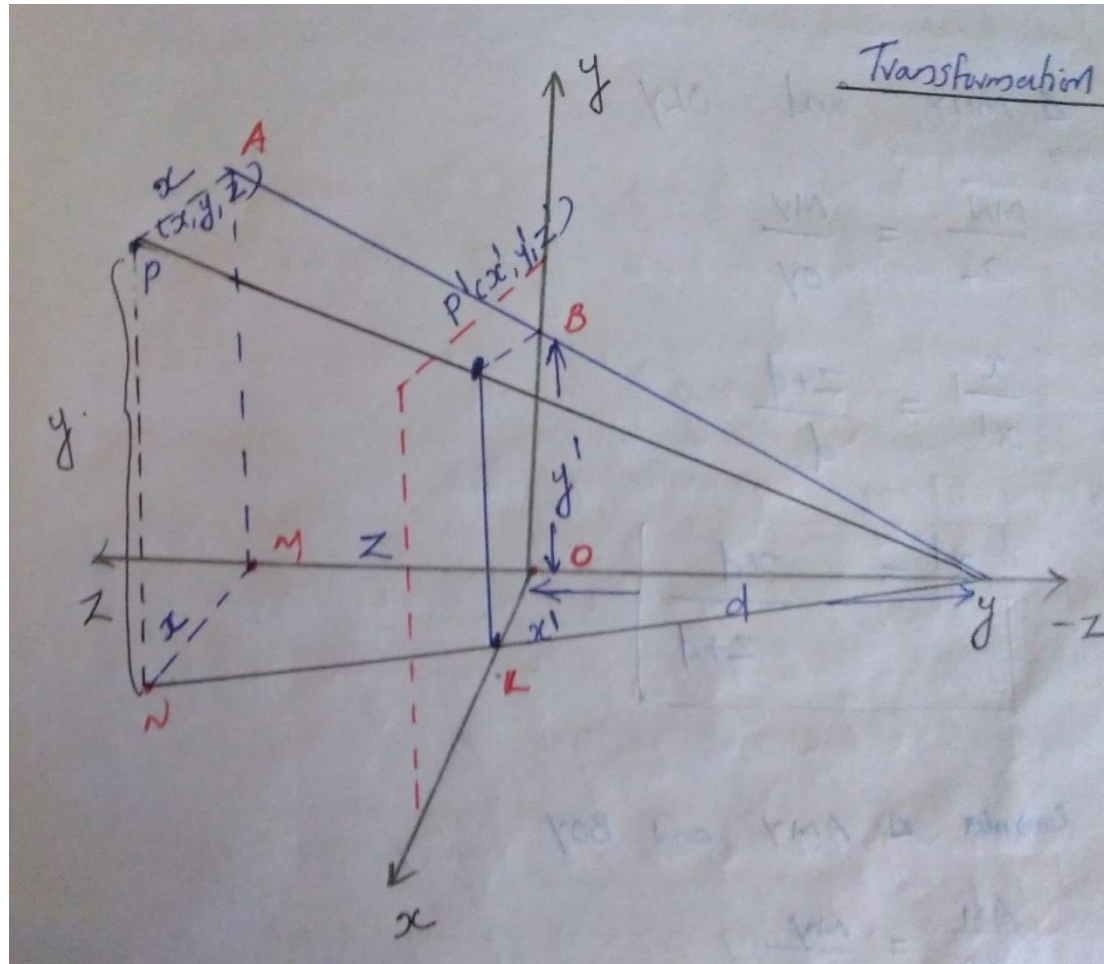 Transformation
y
A
x
(x, y, z)
P
P'(x', y', z)
B
y
y'
M
Z
O
Z
x
x'
d
y
-Z
N
L
x